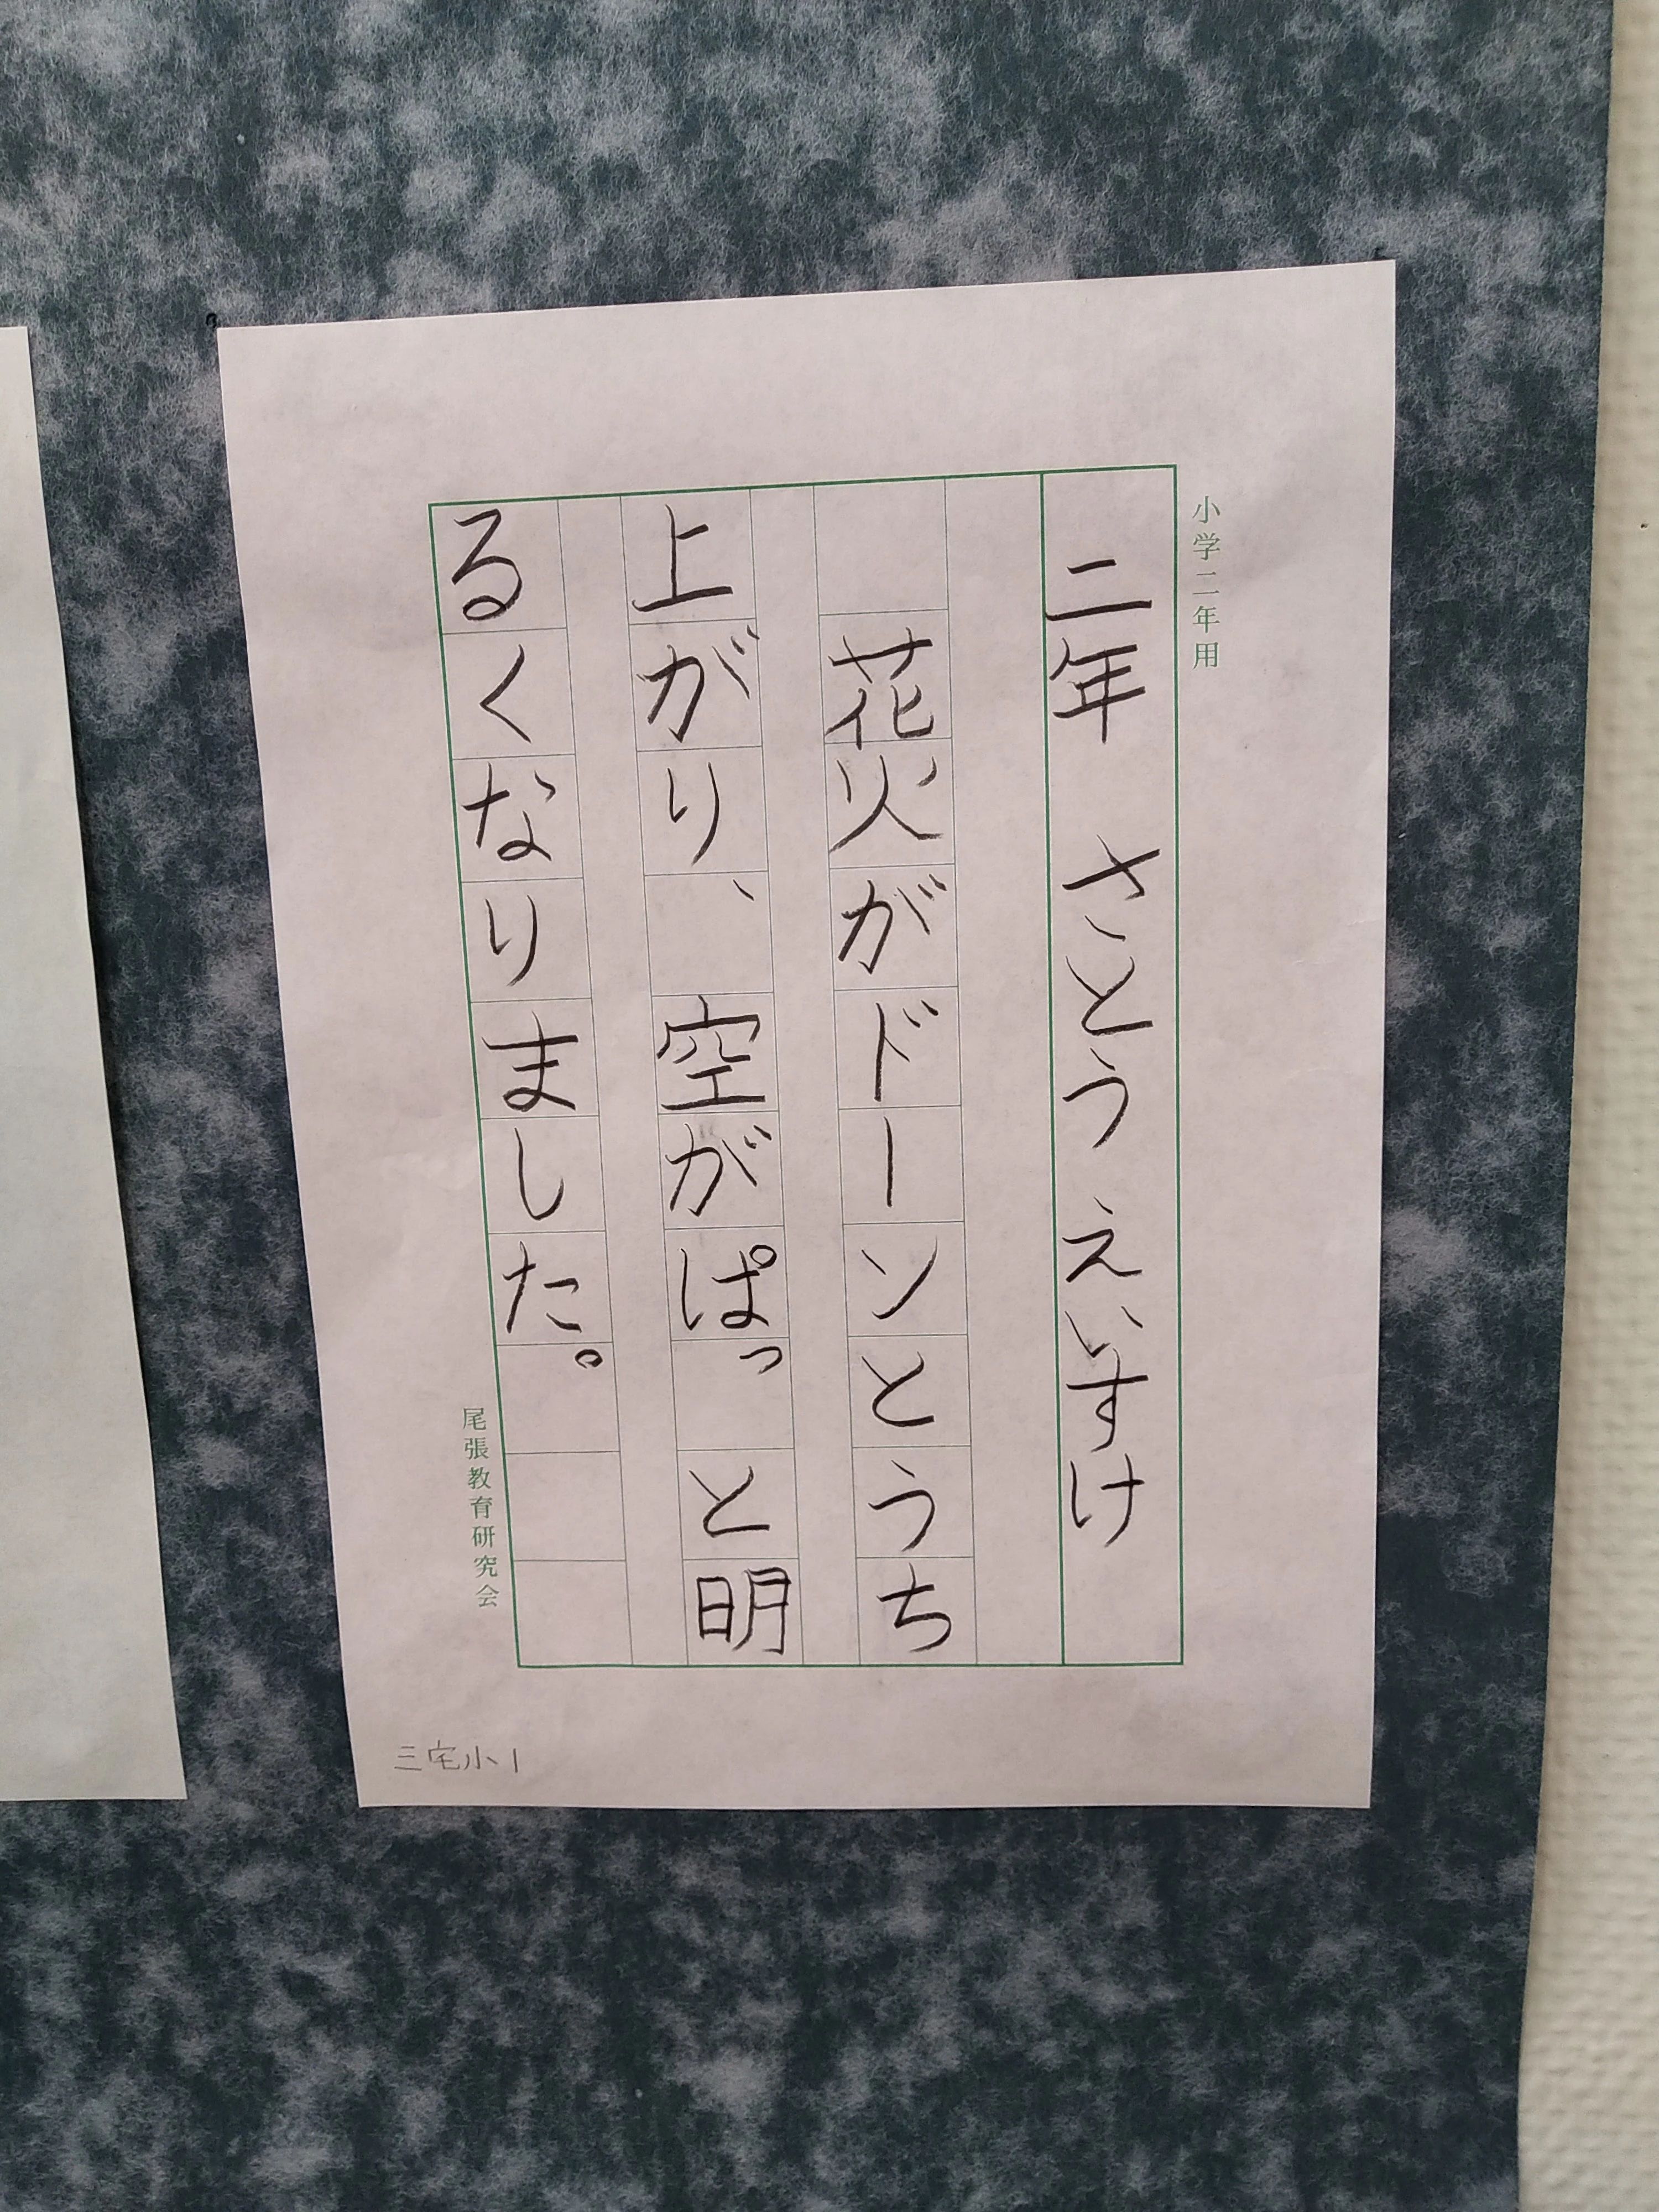 小学二年用
二年　さとう えいすけ
花火がドーンとうち
上がり、空がぱっと明
るくなりました。
尾張教育研究会
三宅小1